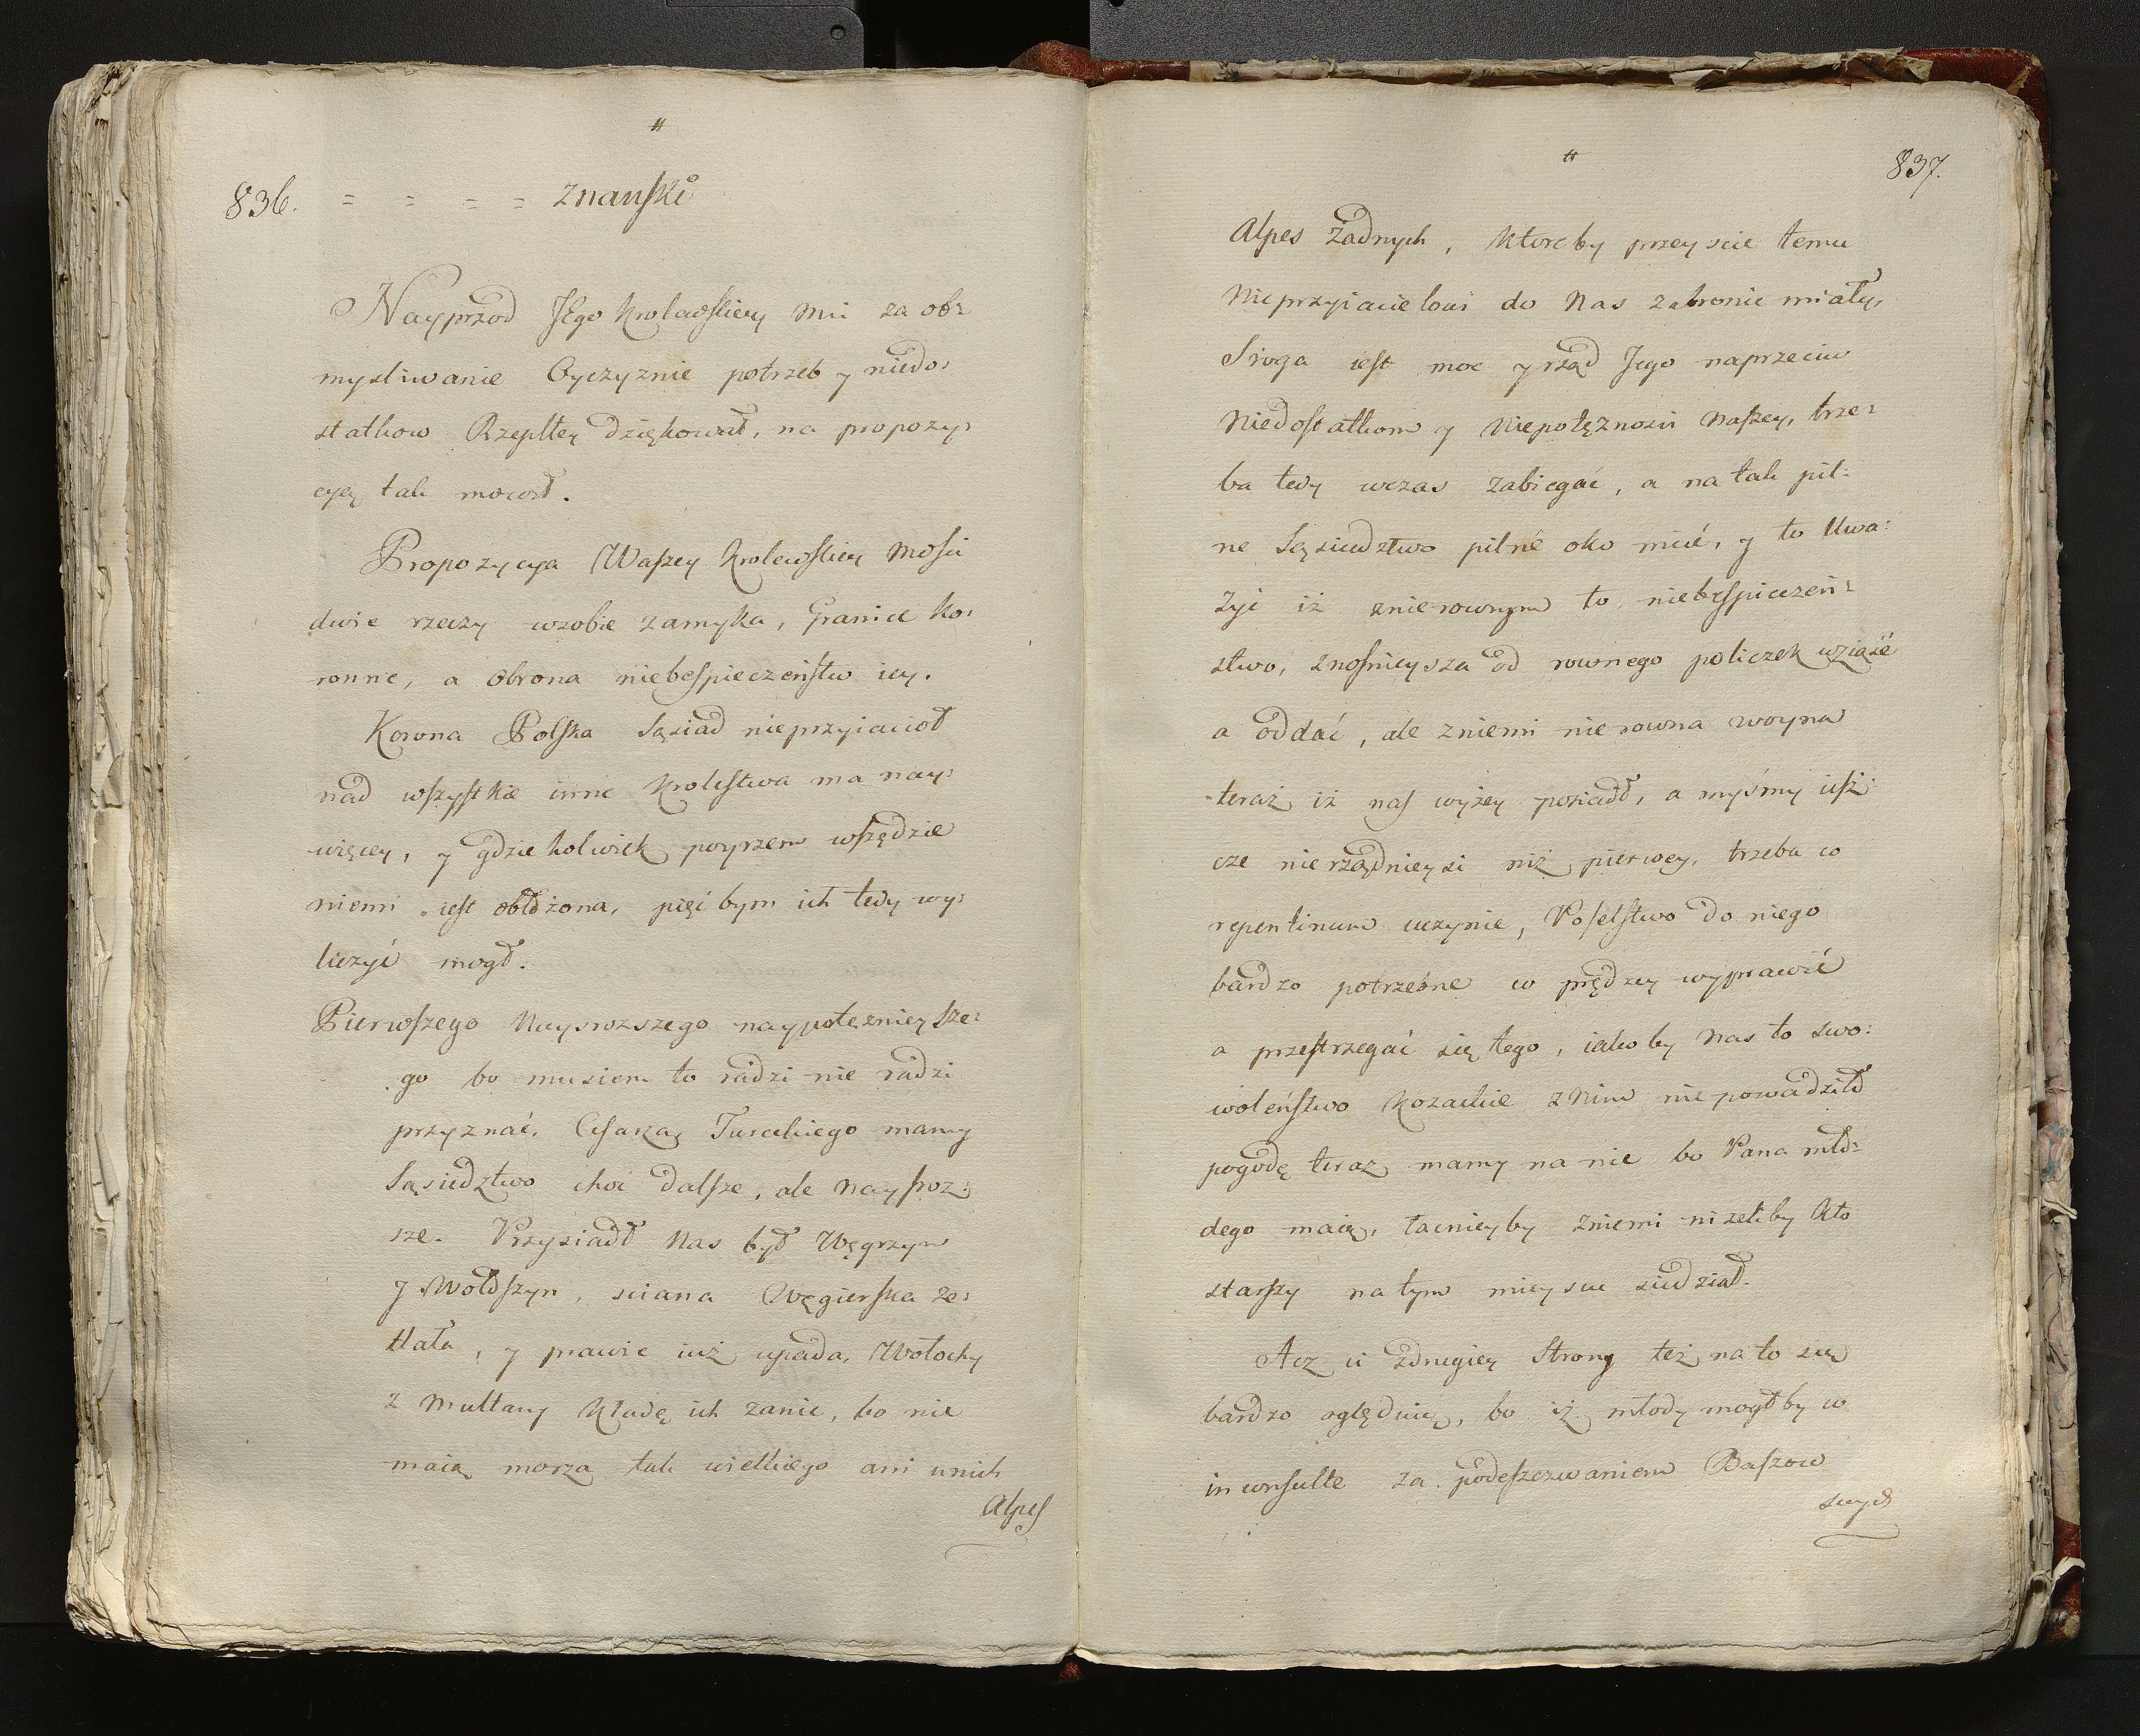 "
836. = = = = Znanski
Nayprzod JEgo Krolewskiey Mci za ob=
mysliwanie Oyczyznie potrzeb y niedo=
statkow Rzeplltey dziękował, na propozy=
cyę tak mowił.
Propozycya Waszey Krolewskiey Mosci
dwie rzeczy wsobie zamyka, Granice Ko=
ronne, a obrona niebespieczeństw iey.
Korona Polska Sąsiad nieprzyiacioł
nad wszystkie inne Krolestwa ma nay=
więcey, y gdziekolwiek poyrzem wszędzie
niemi iest obłożona, pięćbym ich tedy wy=
liczyć mogł.
Pierwszego Naysrozszego naypotęznieysze=
go bo musiem to radzi nie radzi
przyznać, Cesarza Tureckiego mamy
Sąsiedztwo choć dalsze, ale Naysroz=
sze. Przysiadł Nas był Węgrzyn
y Wołoszyn, sciana Węgierska ze=
tlała, y prawie iuż upada, Wołochy
z Multany kładę ich zanic, bo nie
maią morza tak wielkiego ani unich
Alpes
"
837.
Alpes żadnych, ktoreby przeyscie temu
Nieprzyiacielowi do Nas zabronic miały,
Sroga iest moc y rząd Jego naprzeciw
Niedostatkom y Niepotęznosci Naszey, trze=
ba tedy wczas zabiegać, a na tak pil=
ne Sąsiedztwo pilné oko mieć, y to Uwa=
żyć iż znierownym to niebespieczeń=
stwo, znosnieysza od rownego policzek wziąść
a oddać, ale zniemi nierowna woyna
teraż iż nas wyżey posiadł, a myśmy iesz=
cze nierządnieysi niż pierwey, trzeba co
repentinum uczynic, Poselstwo do niego
bardzo potrzebne co prędzey wyprawić
a przestrzegać się tego, iakoby Nas to swo=
woleństwo Kozackie znim niepowadziło
pogodę teraz mamy na nie bo Pana mło=
dego maią, łacnieyby zniemi niżeliby kto
starszy natym mieyscu siedział.
Acz ci zdrugiey Strony też nato się
bardzo oględuię, bo iż młody mogłby co
inconsulte za podeszczwaniem Baszow
swych